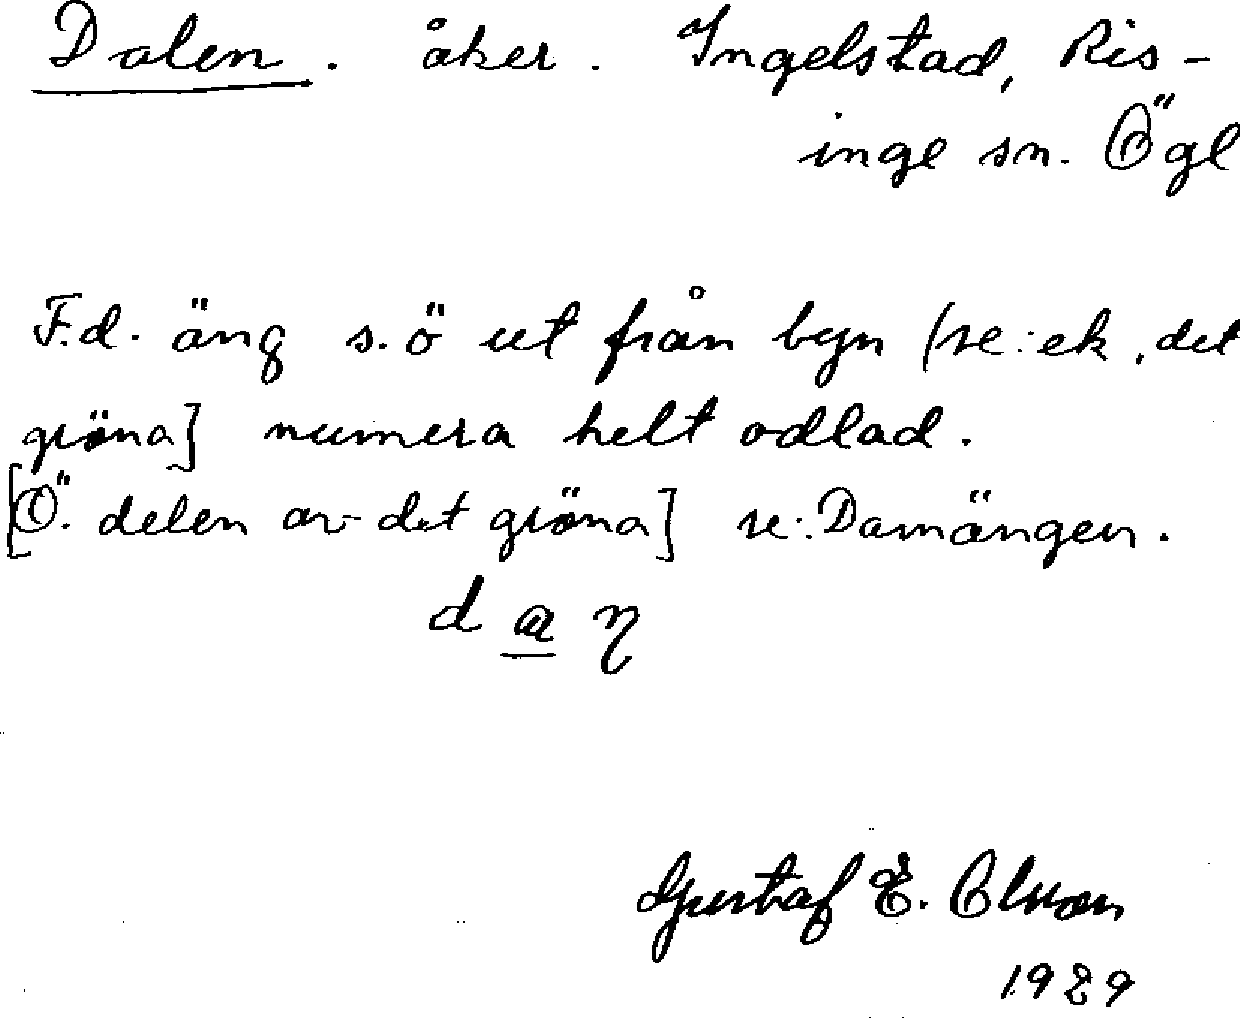 Dalen. åker. Ingelstad, Ris-
inge sn. Ögl
F.d. äng s.ö ut från byn (se: ek. det
gröna] numera helt odlad.
[Ö. delen av det gröna] se: Damängen.
d a η
Gustaf E. Olsson
1929